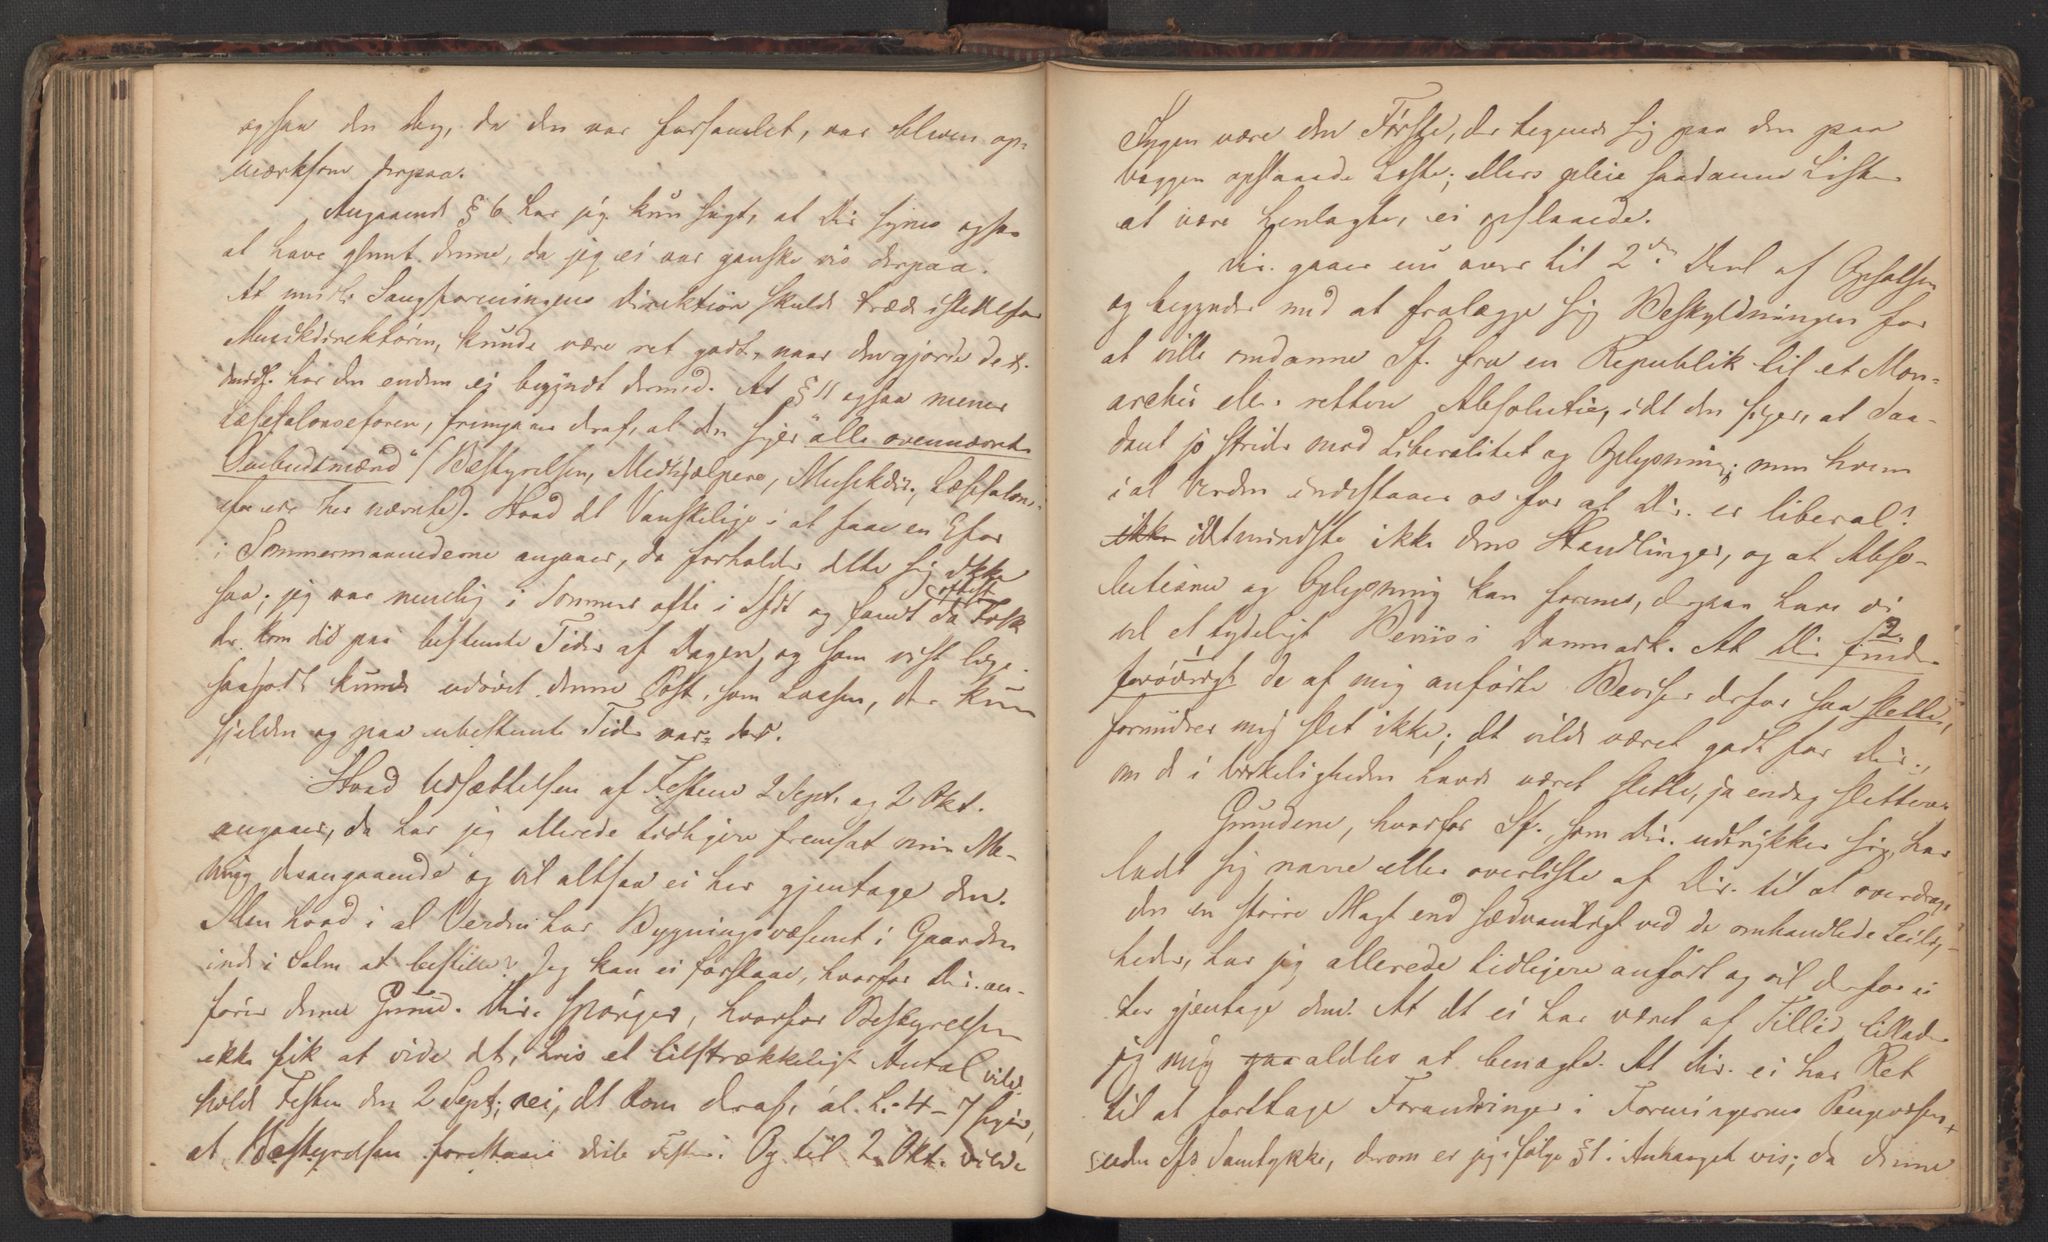 ogsaa den Dag, da den var forsamlet, var bleven op-
mærksom derpaa.
Angaaende § 6 har jeg kun sagt, at Dir. synes ogsaa
at have glemt denne, da jeg ei var ganske vis derpaa.
At nu Sangforeningens Direktion skulde træde istedetfor
Musikdirektøren, kunde være ret godt, naar den gjorde det.
har den endnu ei begyndt dermed. At § 11 ogsaa mener
Læsesalonseforen, fremgaaer deraf, at der siges "alle ovennævnte
Ombudsmænd" (Bestyrelsen, Medhjælpere, Musikdir., Læsesalons-
efor ere her nævnte). Hvad det Vanskelige i at faae en Efor
i Sommermaanederne angaaer, da forholder dette sig ikke
saa; jeg var nemlig i Sommer ofte i Sfdt og fandt da oftest Folk
der kom did paa bestemte Tider af Dagen og som vist lige-
saagodt kunde udøvet denne Post, som Laasen, der kun
sjelden og paa ubestemte Tider var der.
Hvad Udsættelsen af Festene 2 Sept. og 2 Okt.
angaaer, da har jeg allerede tidligere fremsat min Me-
ning desangaaende og vil altsaa ei her gjentage den.
Men hvad i al Verden har Bygningsvæsenet i Gaarden
inde i Salen at bestille? Jeg kan ei forstaae, hvorfor Dir. an-
fører denne Grund. Dir. spørger, hvorfor Bestyrelsen
ikke fik at vide det, hvis et tilstrækkeligt Antal vilde
holde Festen den 2 Sept; nei, det kom deraf, at L. 4-7 siger,
at Bestyrelsen forestaaer disse Fester. Og til 2 Okt. vilde
Ingen være den Første, der tegnede sig paa den paa
Væggen opslaaede Liste; ellers pleie saadanne Lister
at være henlagte, ei opslaaede.
Dir. gaaer nu over til 2den Deel af Opsatsen
og begynder med at fralægge sig Beskyldningen for
at ville omdanne Sf. fra en Republik til et Mon-
archie ell. rettere Absolutie, idet den siger, at Saa-
dant jo strider mod Liberalitet og Oplysning; men hvem
i al Verden indestaaer os for at Dir. er liberal?
ikke idetmindste ikke dens Handlinger, og at Abso-
lutisme og Oplysning kan forenes, derpaa have vi
vel et tydeligt Beviis i Danmark. At Dir. finder
forøvrigt de af mig anførte Beviser derfor saa slette,
forundrer mig slet ikke; det vilde været godt for Dir.,
om de i Virkeligheden havde været slette, ja endog slettere.
Grundene, hvorfor Sf., som Dir. udtrykker sig, har
ladt sig narre eller overliste af Dir. til at overdrage
den en større Magt end sædvanligt ved de omhandlede Leilig-
heder, har jeg allerede tidligere anført og vil derfor ei
her gjentage dem. At det ei har været af Tillid tillader
jeg mig aldeles at benægte. At Dir. ei har Ret
til at foretage Forandringer i Foreningernes Pengevæsen
uden Sfs Samtykke, derom er jeg ifølge § 1 i Anhanget vis; da denne